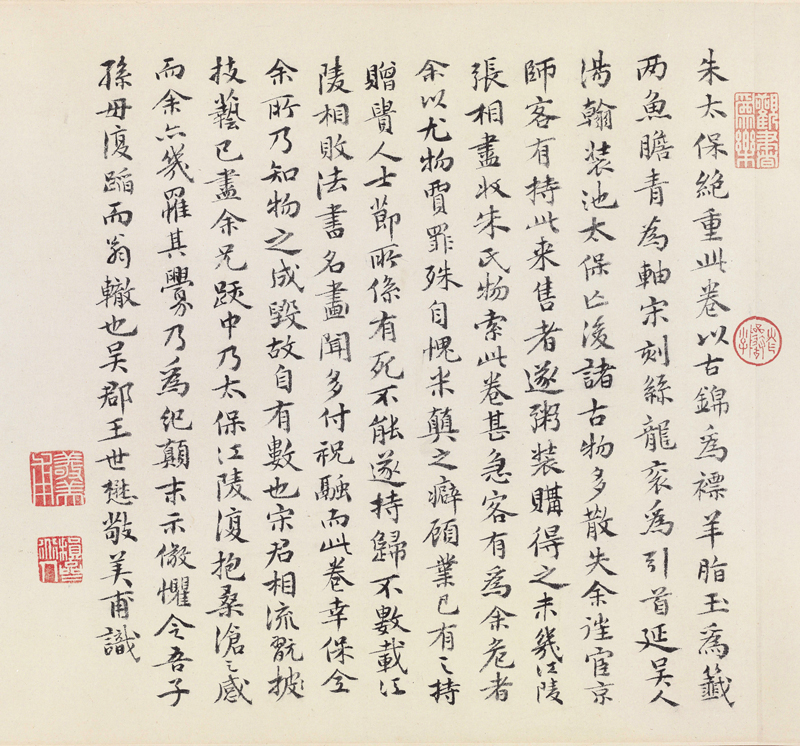 朱太保絕重此卷以古錦為褾羊脂玉為籤
两魚膽青為軸宋刻絲龍衮為引首延吳人
湯翰装池太保亡後諸古物多散失余往宦京
師客有持此来售者遂粥装購得之未幾江陵
張相盡收朱氏物索此卷甚急客有為余危者
余以尤物賈罪殊自愧米顛之癖顧業已有之持
贈貴人士節所係有死不能遂持歸不數載江
陵相敗法書名畫聞多付祝融而此卷幸保全
余所乃知物之成毀故自有數也宋君相流翫披
技藝已盡余兄跋中乃太保江陵復抱桑滄之感
而余亦幾罹其釁乃為紀顛末示儆懼令吾子
孫毋復蹈而翁轍也吳郡王世懋敬美甫識